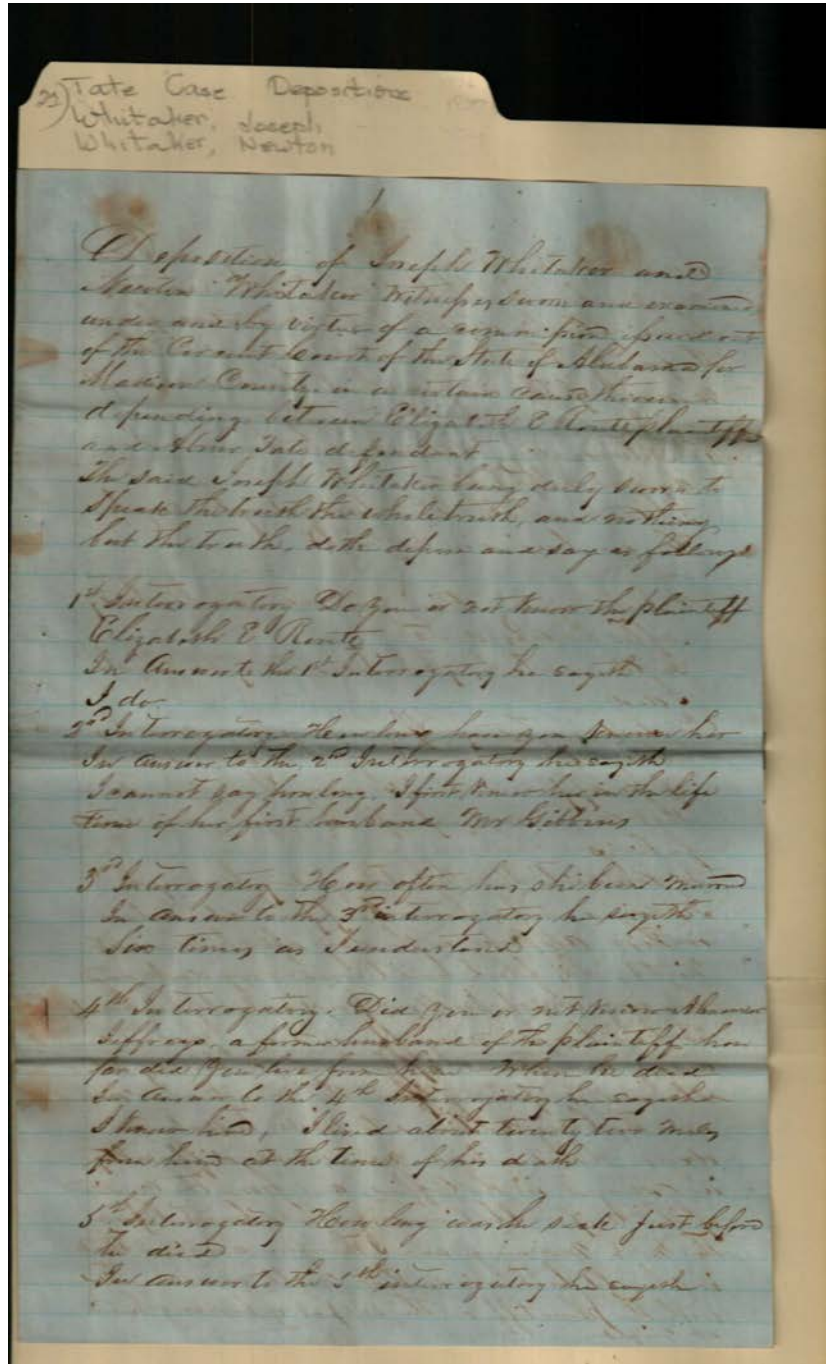 21) Tate Case Depositions
Whitaker, Joseph
Whitaker, Newton
1
Deposition of Joseph Whitaker and
Newton Whitaker Witnesses sworn and examined
under and by virtue of a commission issued out
of the Circuit Court of the State of Alabama for
Madison County in a certain cause therein
depending between Elizabeth E Routt plaintiff
and Abner Tate defendant
The said Joseph Whitaker being duly sworn to
Speak the truth the whole truth, and nothing
but the truth, doth depose and say as follows
1st Interrogatory Do you or not know the plaintiff
Elizabeth E Routt
In Answer to the 1st Interrogatory he sayeth
I do
2nd Interrogatory How long have you known her
In answer to the 2nd Interrogatory he sayeth
I cannot say how long, I first knew her in the life
time of her first husband Mr Gibbons
3rd Interrogatory How often has she been married
In answer to the 3rd interrogatory he sayeth
Six times as I understand
4th Interrogatory. Did you or not know
Jeffreys, a former husband of the plaintiff how
far did you live from him when he died
In answer to the 4th Interrogatory he sayeth
I knew him, I lived about twenty two miles
from him at the time of his death
5th Interrogatory How long was he sick just before
he died
In answer to the 5th interrogatory he sayeth